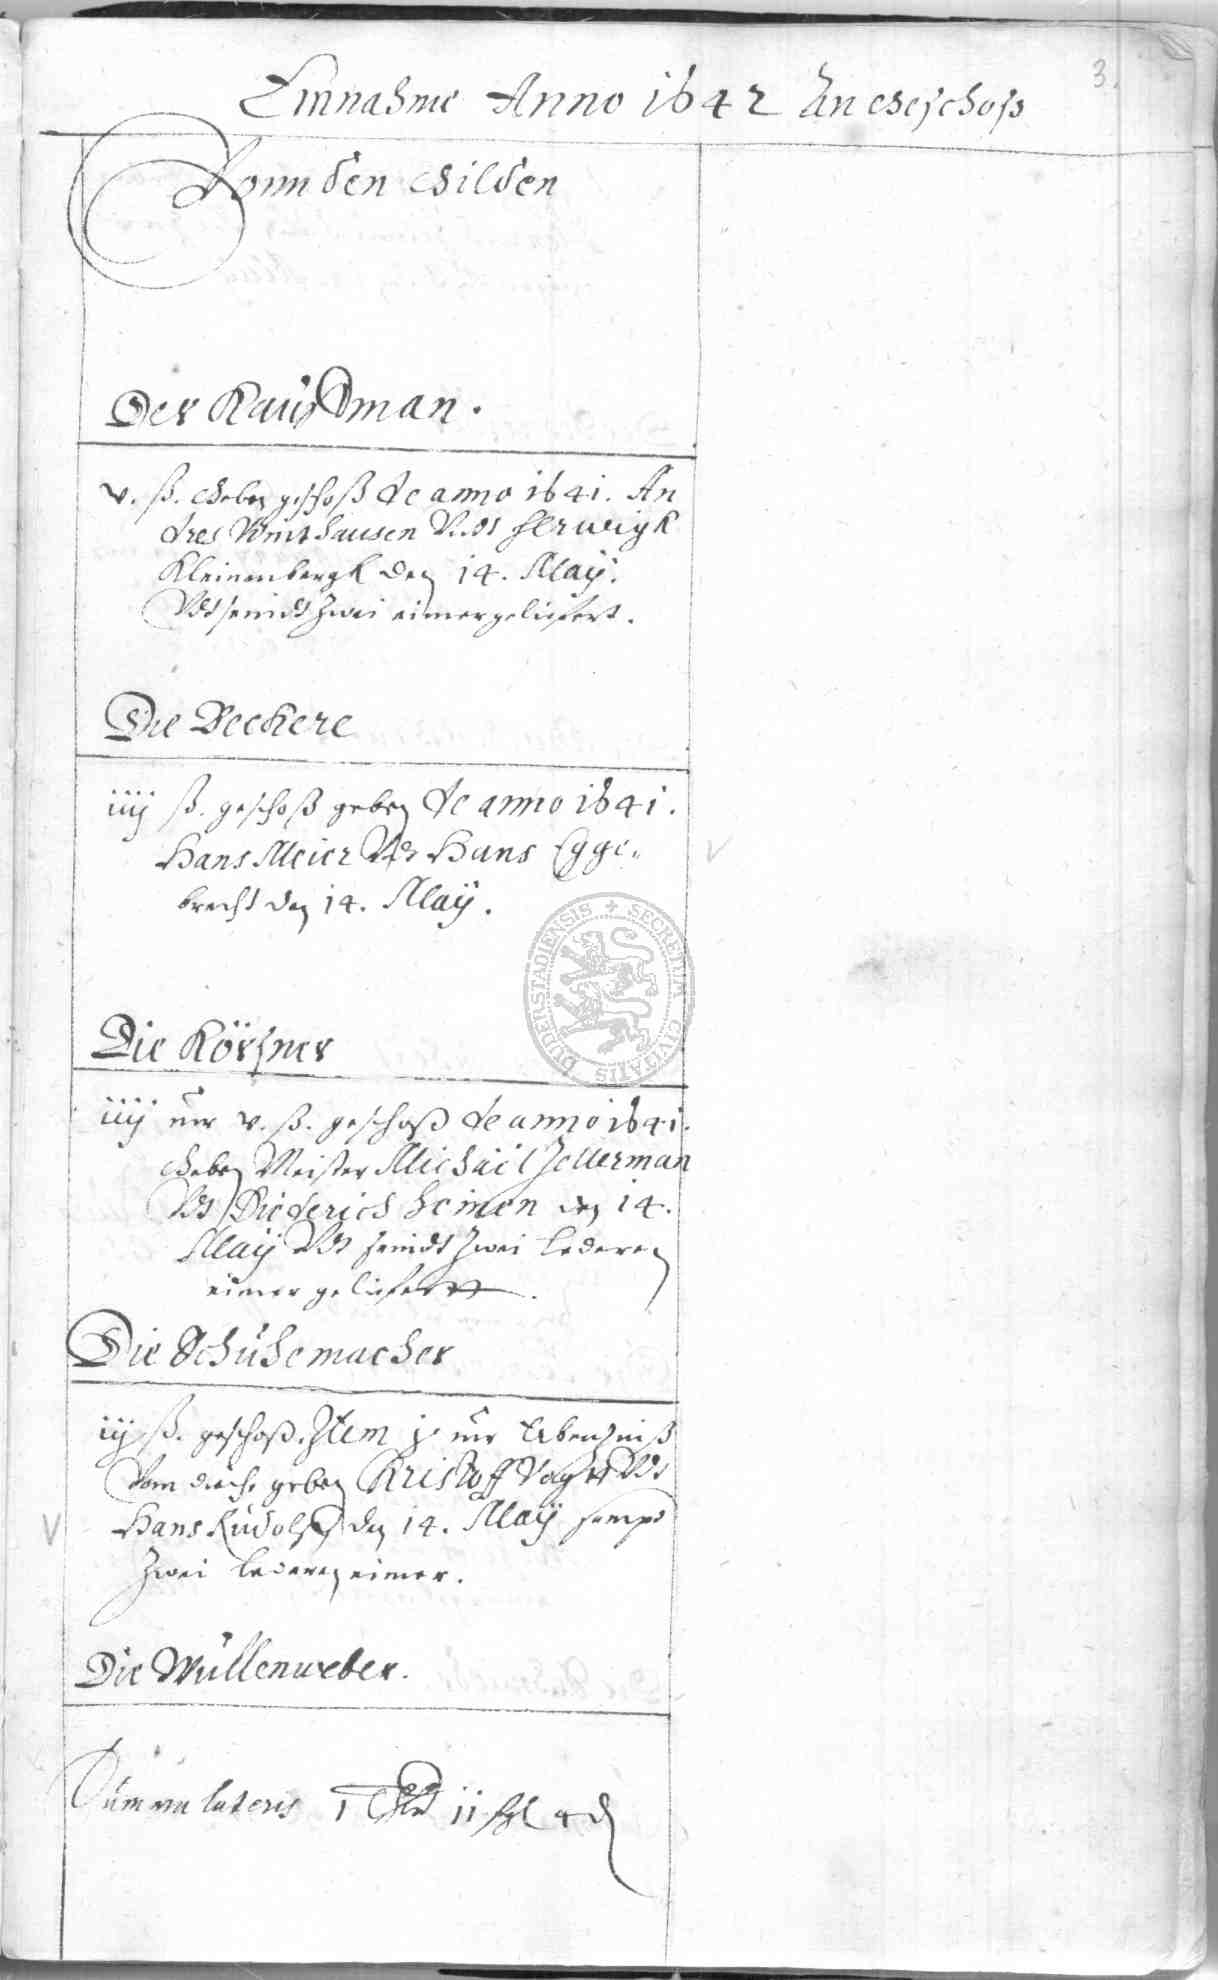 3.
Einnahme Anno 1642 An Geschoß
Vonn den Gilden
Der Kauffman.
v. ß. Geben geschoß de anno 1641. An
dres Wintthausen Vndt Herwigk
Kleinenbergk den 14. Maÿ.
Vndt seindt zwei eimer geliefert.
Die Beckere
iiij ß. geschoß geben de anno 1641.
Hans Meier Vndt Hans Egge„
brecht den 14. Maÿ.
Die Körsner
iiij mr v. ß. geschoß de anno 1641.
Geben Meister Michäel Zellerman
Vndt Diederich Heinen den 14.
Maÿ Vndt seindt zwei lederen
eimer geliefertt.
Die Schuhemacher
iij ß. geschoß. Item j mr
Vom geben Kristoff Vogtt Vndt
Hans Rudolff den 14. Maÿ sampt
zwei lederen eimer.
Die Wüllenweber.
Summa lateris 1 11 4
DUDERSTADIENSIS + SECRETUM CIVITATIS